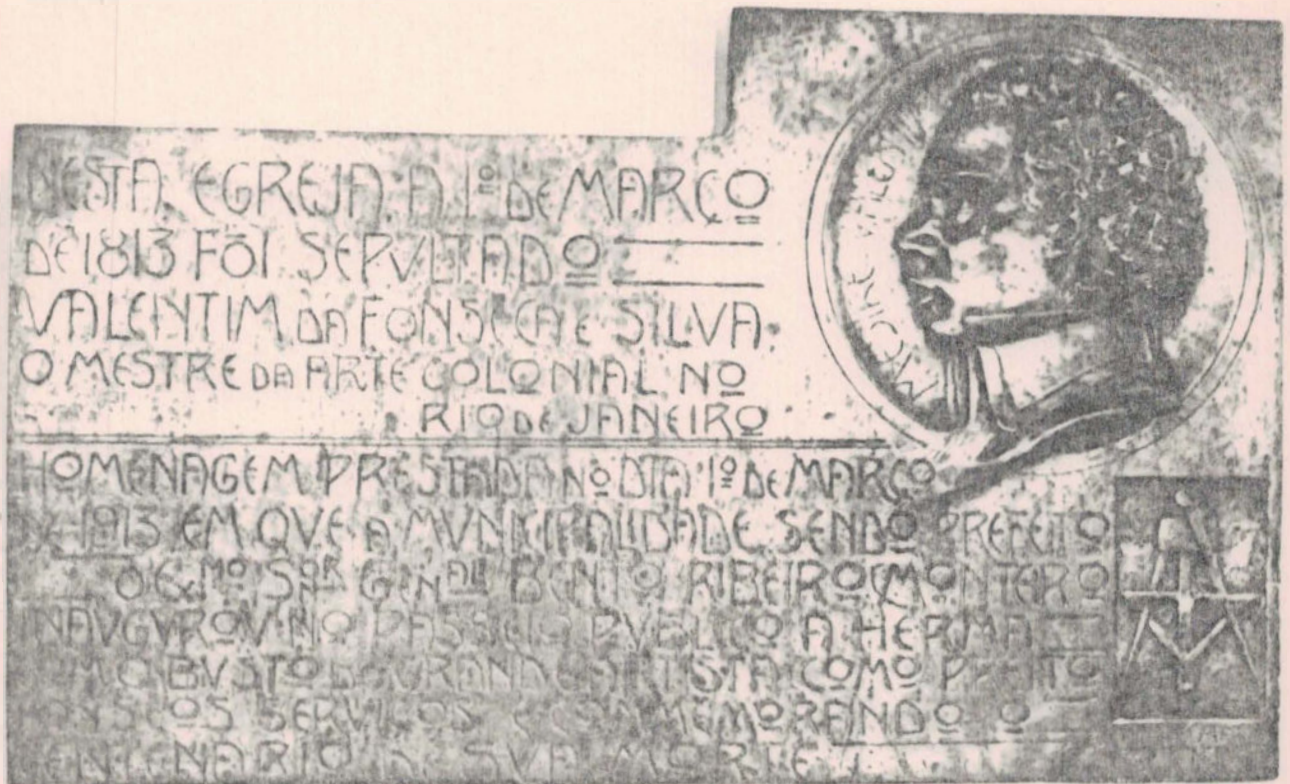 NESTA EGREJA A 1º DE MARÇO
DE 1813 FOI SEPVLTADO
VALENTIM DA FONSECA E SILVA.
O MESTRE DA ARTE COLONIAL NO
RIO DE JANEIRO
MESTRE VALENTIM
HOMENAGEM PRESTADA NO DIA 1º DE MARÇO
DE 1913 EM QVE A MVNICIPALIDADE SENDO PREFEITO
O EXMO SNR GENAL BENTO RIBEIRO MONTEIRO
INAVGVROV NO PASSEIO PVBLICO A HERMA
BVSTO DO GRANDE ARTISTA COMO PREITO
SERVIÇOS COMMEMORANDO O
CENTENARIO DE SVA MORTE